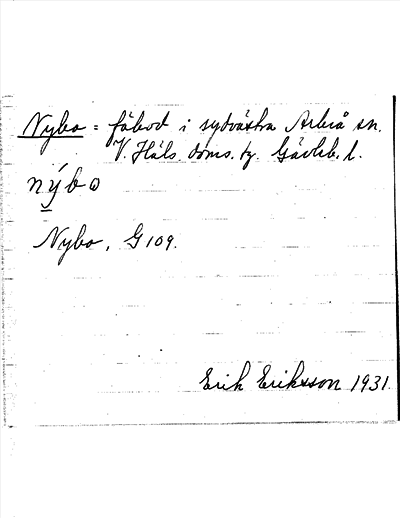 Nybo = fäbod i sydvästra Arbrå sn.
V. Häls. doms. ty. Gävleb. l.
nýbo
Nybo, G 109.
Erik Eriksson 1931